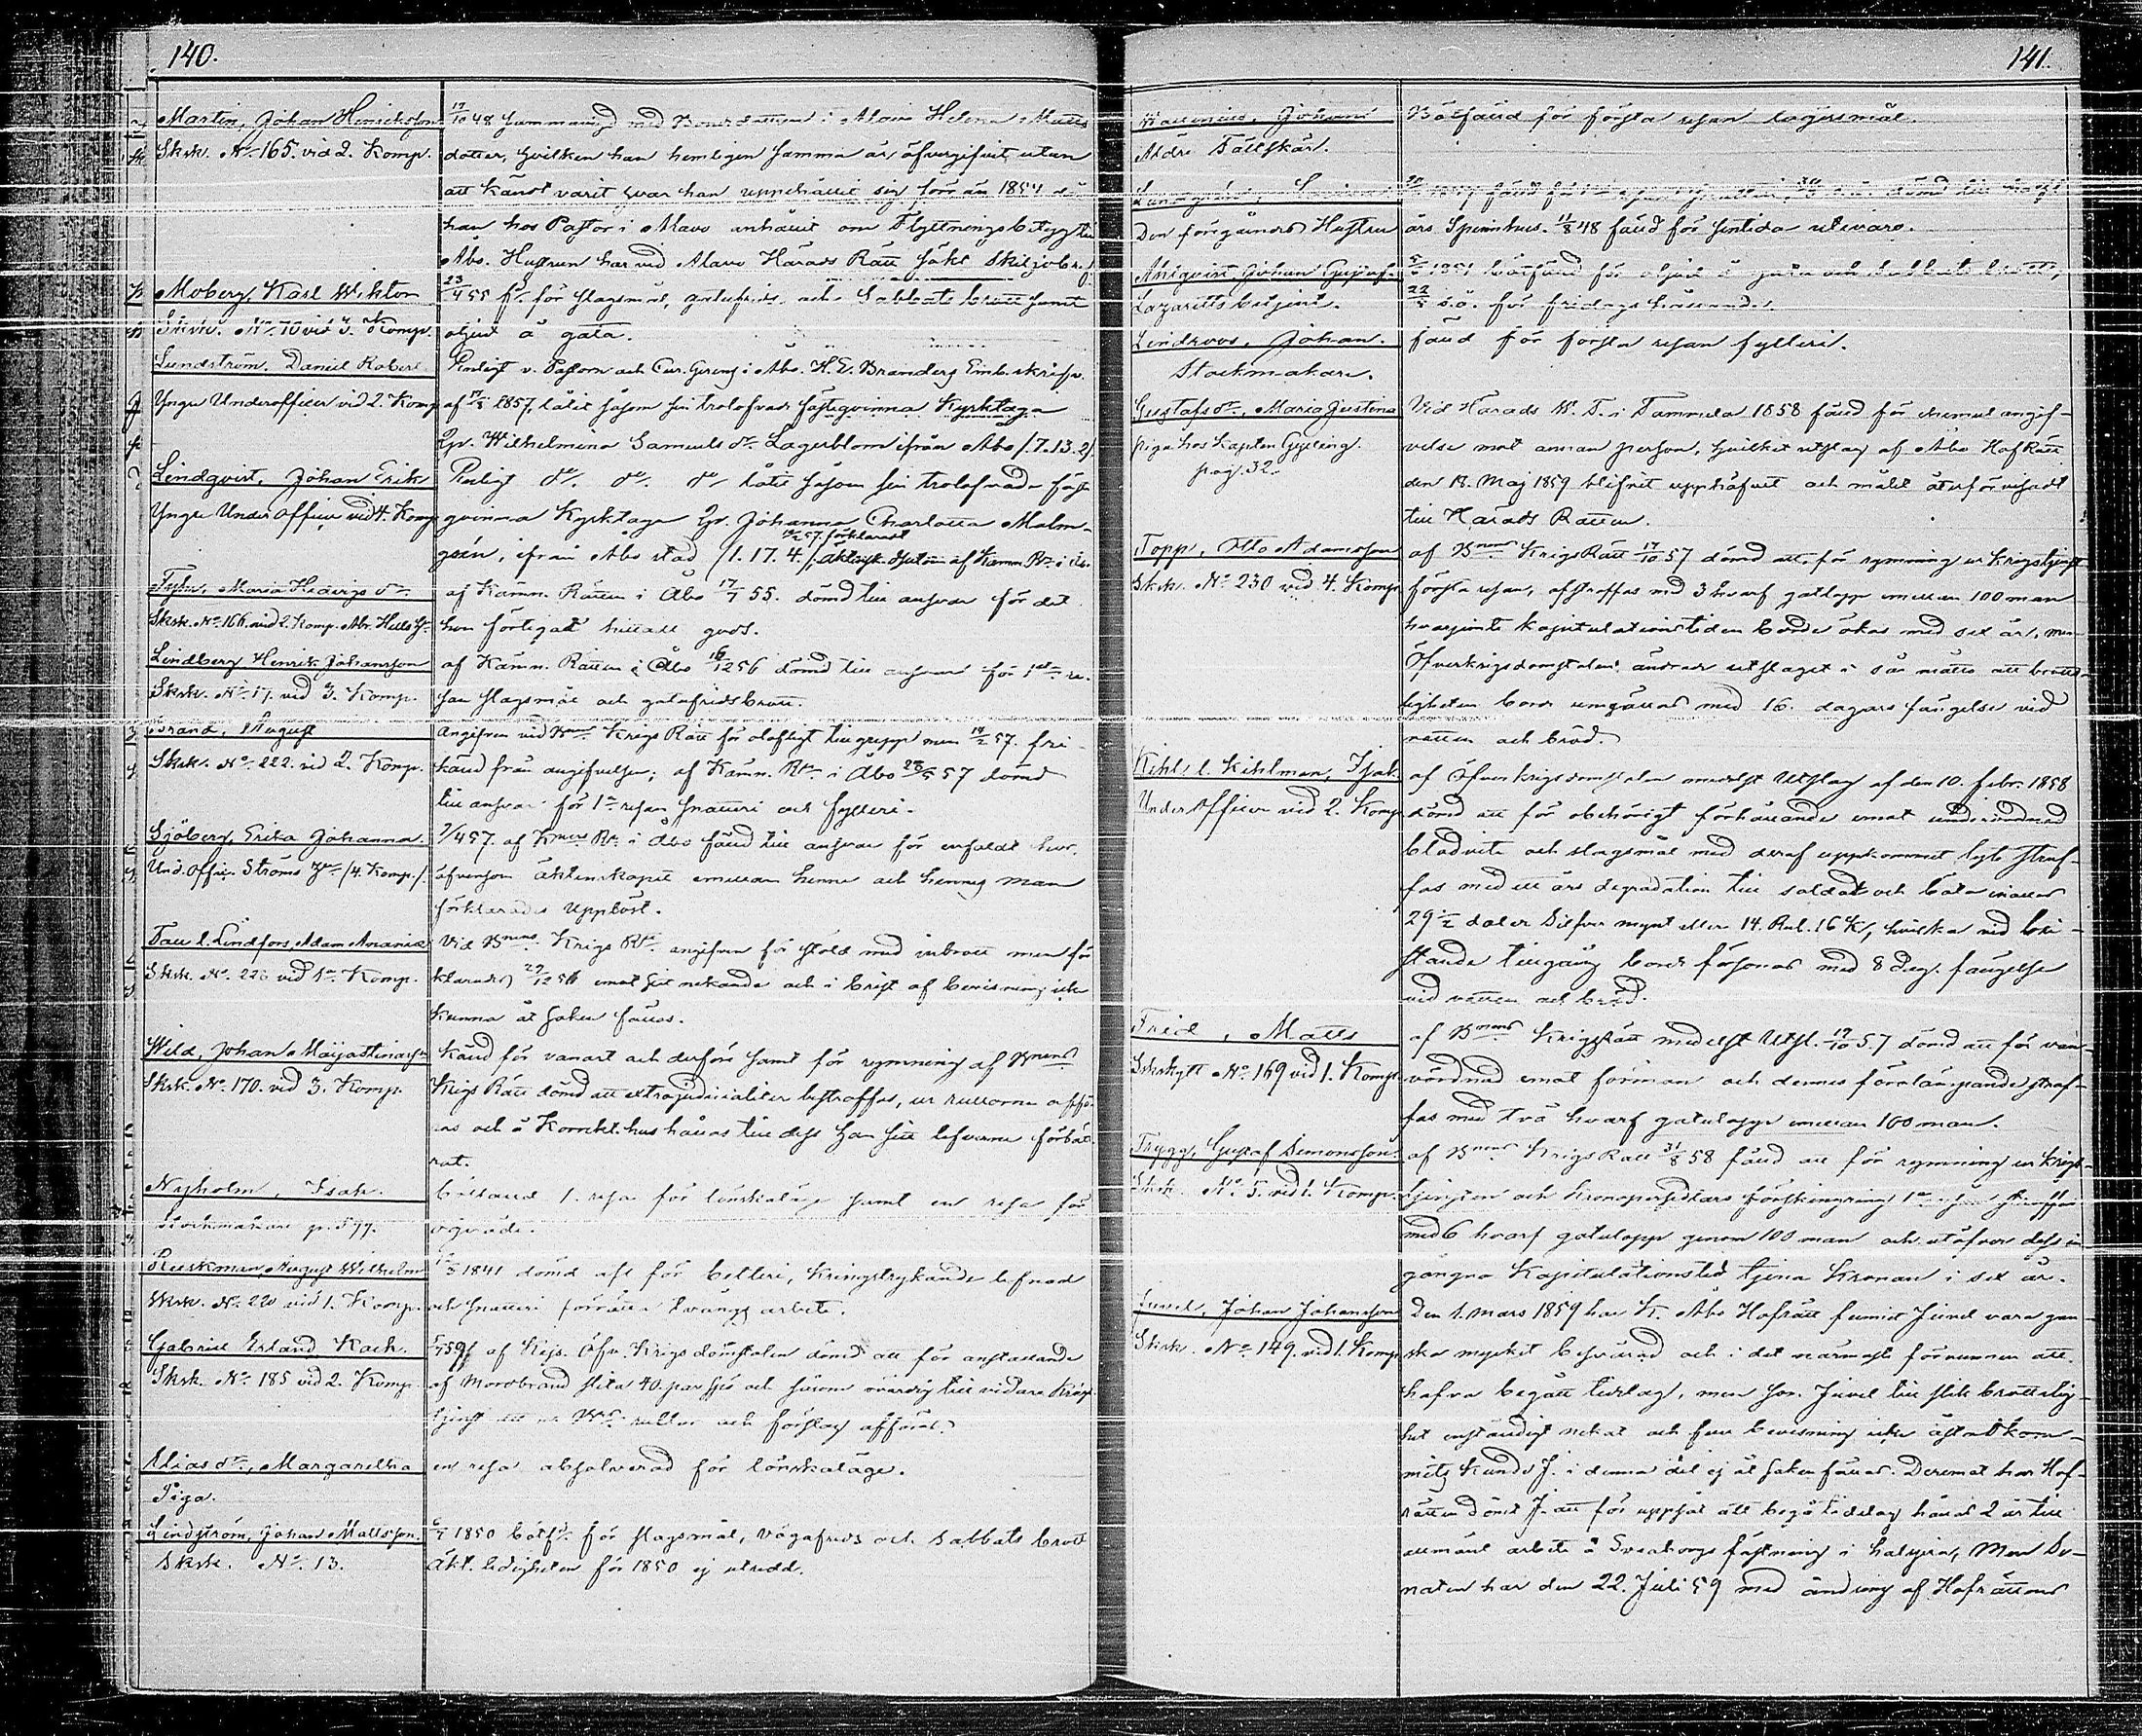 140.
Martin, Johan Henriksson
Sksk. No 165. vid 2. Komp.
19/10 48 sammanvigd med Bondedottren i Alavo Helena Matts
dotter, hvilken han hemligen samma år öfvergifvit, utan
att känt varit hvar han uppehållit sig förr än 1854 då
han hos Pastor i Alavo anhållit om Flyttningsbetyg till
Åbo. Hustrun har vid Alavo Härads Rätt sökt Skiljobr.
Moberg, Karl Wiktor
Sksk. No 70 vid 3. Komp.
23/4 55 för slagsmål, gatufrids och Sabbats brott samt
oljud å gata.
Sundström, Daniel Robert
Yngre Underofficer vid 2. Komp
Enligt v. Pastorn och Cur. Gerens i Åbo. K. E. Branders Emb. skrifv.
af 1857, låtit såsom sin trolofvade fästeqvinna Kyrktaga
Qp. Wilhelmina Samuels dr Lagerblom ifrån Åbo /.7.13.2/.
Lindqvist, Johan Erik
Yngre Under Officer vid 4. Komp
Enligt do do do låtit såsom sin trolofvade fäste
qvinna Kyrktaga Qp. Johanna Charlotta Malm-
57. förklarad
grén, ifrån Åbo stad /1.17.4./, äktensk. hustru af Kämn. Rn i Åbo.
Maria Hedvigs dr
Sksk. No 166. vid 2. Komp. Abr. Hells h.
af Kämn. Rätten i Åbo 17/7 55. dömd till ansvar för det
hon förtigatt hittadt gods.
Lindberg Henrik Johansson
Sksk. No 17. vid 3. Komp.
af Kämn. Rätten i Åbo 16/12 56 dömd till ansvar för 1sta re-
san slagsmål och gatufridsbrott.
Brand, August
Sksk. No 222. vid 2. Komp.
Angifven vid Krigs Rätt för olofligt tillgrepp men 19/2 57. fri-
känd från angifvelsen; af Kämn. Rn i Åbo 28/5 57 dömd
till ansvar för 1a resan snatteri och fylleri.
Sjöberg, Erika Johanna.
Und. Officer Ströms h. /4. Komp./
7/4 57. af Rn i Åbo fänd till ansvar för enfaldt hor,
äfvensom äktenskapet emellan henne och hennes man
förklarades upplöst.
Tall l. Lindfors, Adam Ananias
Sksk. No 226 vid 1a Komp.
Vid Krigs Rn angifven för stöld med inbrott men för
klarades 29/12 56 emot sitt nekande och i brist af bevisning icke
kunna åt saken fällas.
Wild, Johan Maijastinasson
Sksk. No 170. vid 3. Komp.
känd för vanart och derföre samt för rymning af
Krigs Rätt dömd att extrajudicialiter bestraffas, ur rullorne afför-
as och å Korrekt. hus hållas till dess han sitt lefverne förbät-
rat.
Nyholm, Isak.
Stockmakare p. 577.
bötfäld 1. resa för lönskaläge samt en resa för
oqväde.
Ruskman, August Wilhelm
Sksk. No 220 vid 1. Komp.
1841 dömd att för betleri, kringstrykande lefnad
och snatteri förrätta tvångs arbete.
Gabriel Erland Koch.
Sksk. No 185 vid 2. Komp.
59 af Kejs. Öfv. Krigs domstolen dömd att för anstaltande
af mordbrand slita 40. par spö och såsom ovärdig till vidare Krigs
tjenst att ur rullor och förslag afföras.
Elias dr, Margaretha
Piga.
en resa absolverad för lönskaläge.
Lindström, Johan Mattsson.
Sksk. No 13.
6/7 1850 bötf. för slagsmål, vägafrids och sabbats brott
Äkt. ledigheten för 1850 ej utredd.
141.
Wallenius, Johan
Äldre Fältskär.
Bötfäld för första resan lägersmål.
Den föregåendes Hustru
års Spinnhus. 11/8 48 fäld för sentida utevaro.
Ahlqvist Johan Gustaf
Lazaretts betjent.
1851 bötfäld för oljud å gata och sabbats brott,
22/5 s.å. för fridags
Lindroos, Johan.
Stockmakare.
fäld för första resan fylleri.
Gustafs dr, Maria Justina
piga hos Kapten Gyllling.
pag. 32.
Vid Härads W. T. i Tammela 1858 fäld för angif-
velse mot annan person, hvilket utslag af Åbo Hof Rätt
den 18. Maj 1859 blifvit upphäfvit och målet återförvisadt
till Härads Rätten.
Topp, Otto Adamsson
Sksk. No 230 vid 4. Komp
af Krigs Rätt 17/10 57 dömd att för rymning ur Krigstjenst
första resan, afstraffas med 3 hvarf gatlopp emellan 100 man
hvarjemte kapitulationstiden borde ökas med sex år, men
Öfverkrigsdomstolen ändrade utslaget i så måtto att brotts-
ligheten borde umgällas med 16. dagars fängelse vid
vatten och bröd.
Kihl l. Kihlman, Isak
Under Officer vid 2. Komp
af Öfver krigsdomstolen medelst Utslag af den 10. febr. 1858
dömd att för obehörigt förhållande emot underordnad
blodvite och slagsmål med deraf uppkommet lyte straf-
fas med ett års degradation till soldat och böta
29 1/2 daler Silfver mynt eller 14. Rub. 16 K/, hvilka vid bri-
stande tillgång borde försonas med 8 dag. fängelse
vid vatten och bröd.
Frid, Matts
Skskytt No 169 vid 1. Komp
af Krigsrätt medelst Utsl. 19/10 57 dömd att för van-
vördnad emot förman och dennes förolämpande straf-
fas med två hvarf gatulopp emellan 100 man.
Trygg, Gustaf Simonsson
Sksk. No 5. vid 1. Komp.
af Krigs Rätt 31/8 58 fäld att för rymning ur krigs-
tjensten och Kronopersedlars förskingring 1a resan straffas
med 6 hvarf gatulopp genom 100 man och utöfver dess in-
gångna Kapitulationstid tjena Kronan i sex år.
Juvel, Johan Johansson
Sksk. No 149. vid 1. Komp
Den 1. mars 1859 har K. Åbo Hofrätt funnit Juvel vara gan-
ska mycket besvärad och i det närmaste förvunnen att
hafva begått tidelag, men som Juvel till slik brottslig-
het enständigt nekat och full bevisning icke åstadkom-
mits kunde J. i denna del ej åt saken fällas. Deremot har Hof-
rätten dömt J. att för uppsåt att begå tidelag hållas 2 år till
allmänt arbete å Sveaborgs fästning i halsjern, Men Se-
naten har den 22. Juli 59 med ändring af Hofrättens